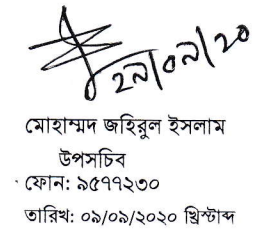 মোহাম্মদ জহিরুল ইসলাম
উপসচিব
ফোন: ৯৫৭৭২৩০
তারিখ: ০৯/০৯/২০২০ খ্রিস্টাব্দ